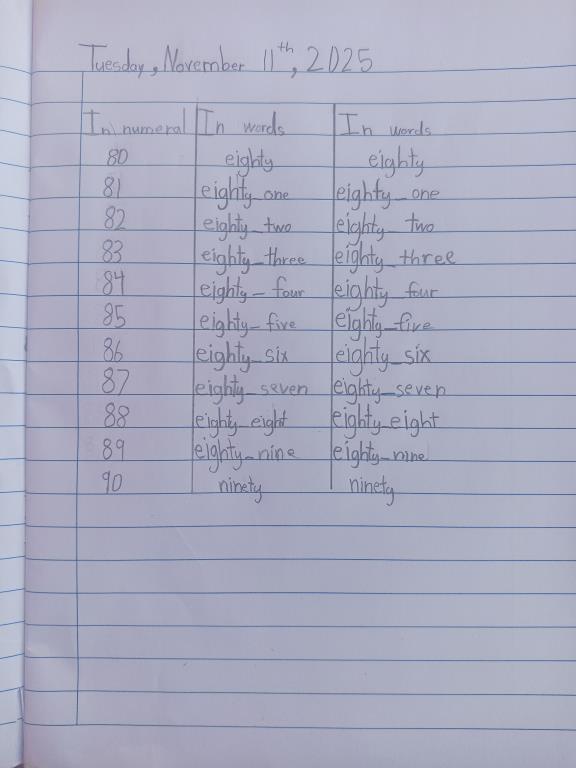 Tuesday, November 11th, 2025
In numeral In words In words
80 eighty eighty
81 eighty_one eighty_one
82 eighty_two eighty_two
83 eighty_three eighty_three
84 eighty_four eighty_four
85 eighty_five eighty_five
86 eighty_six eighty_six
87 eighty_seven eighty_seven
88 eighty_eight eighty_eight
89 eighty_nine eighty_nine
90 ninety ninety